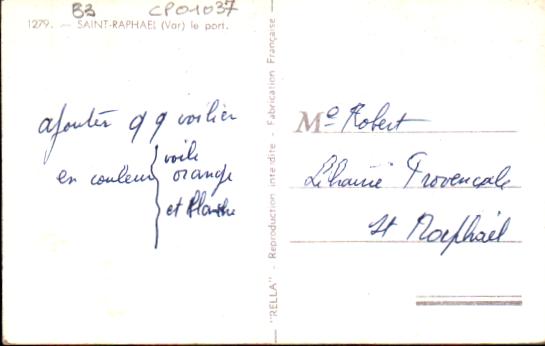 B3 CP01037
1279. — SAINT-RAPHAEL (Var) le port.
ajouter qq voilier
en couleur
voile
orange
et blanche
"RELLA" - Reproduction interdite - Fabrication Française -
Me Robert
Librairie Provençale
St Raphaël